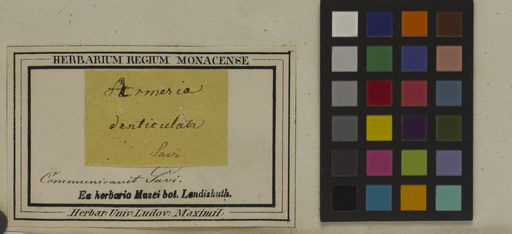 HERBARIUM REGIUM MONACENSE
Armeria
denticulata
Savi.
Communicavit Savi.
Ex herbario Musei bot. Landishuth.
Herbar. Univ. Ludov. Maximil.